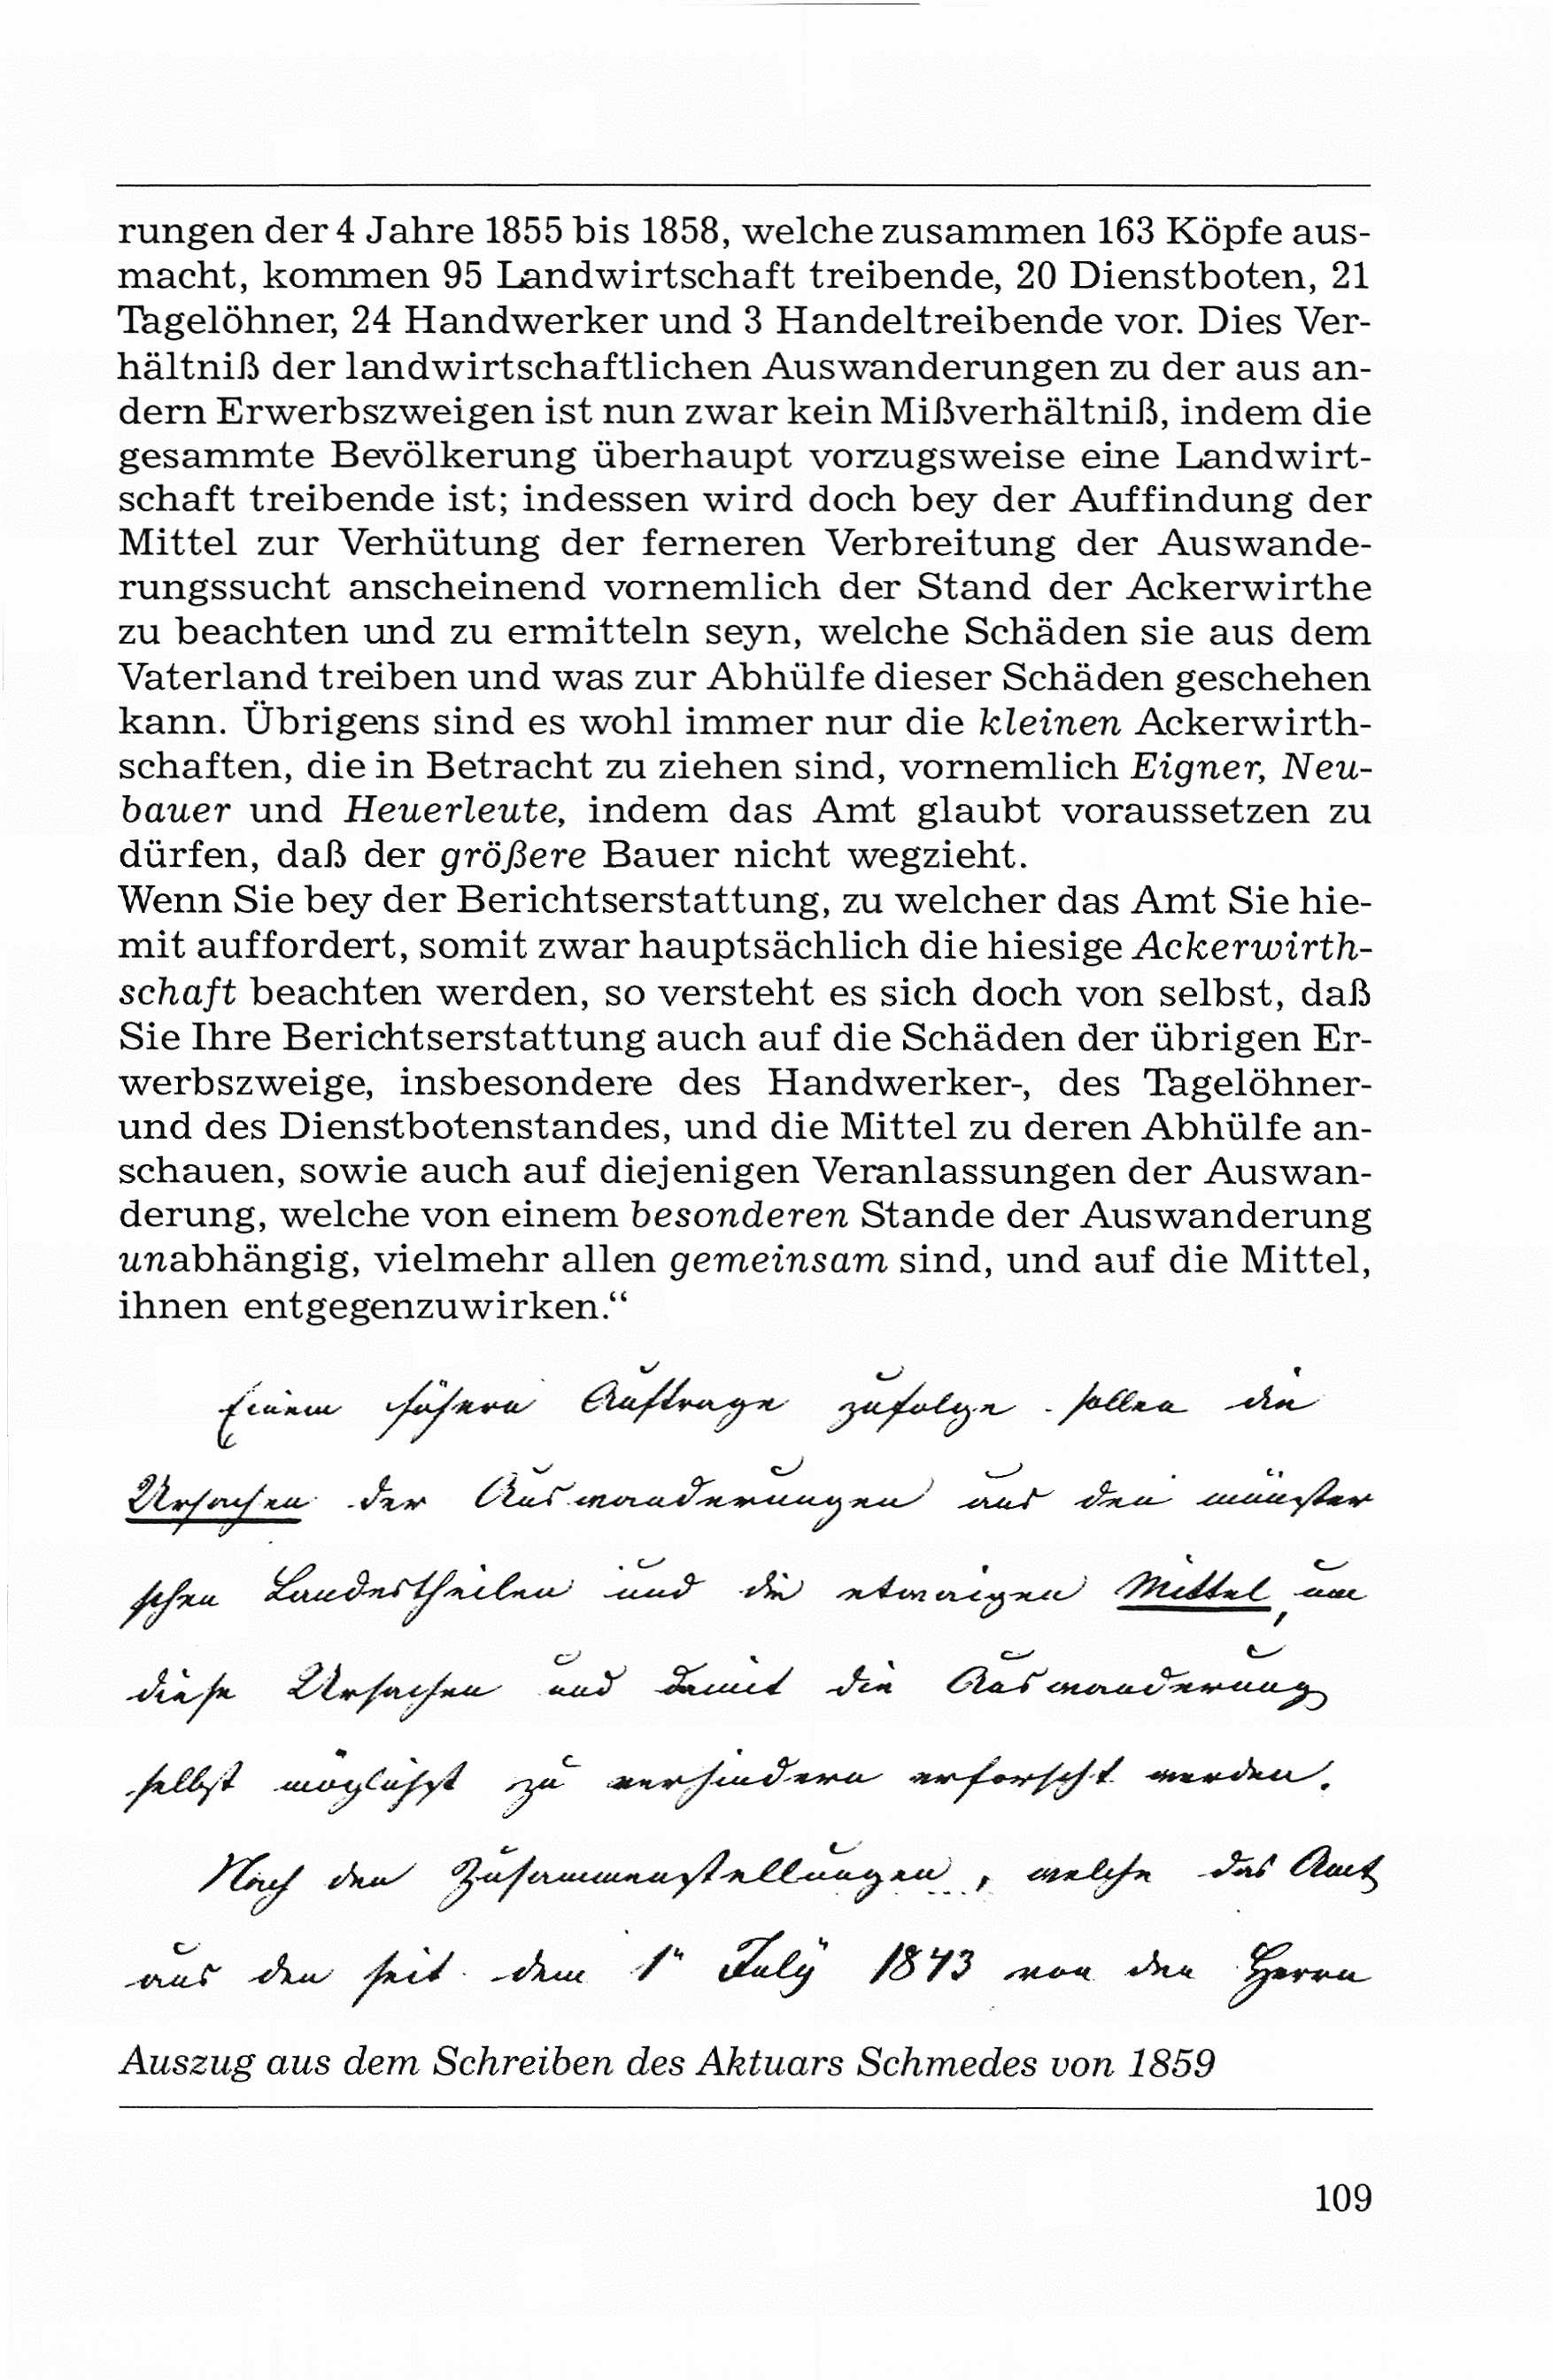 rungen der 4 Jahre 1855 bis 1858, welche zusammen 163 Köpfe aus-
macht, kommen 95 Landwirtschaft treibende, 20 Dienstboten, 21
Tagelöhner, 24 Handwerker und 3 Handeltreibende vor. Dies Ver-
hältniß der landwirtschaftlichen Auswanderungen zu der aus an-
dern Erwerbszweigen ist nun zwar kein Mißverhältniß, indem die
gesammte Bevölkerung überhaupt vorzugsweise eine Landwirt-
schaft treibende ist; indessen wird doch bey der Auffindung der
Mittel zur Verhütung der ferneren Verbreitung der Auswande-
rungssucht anscheinend vornemlich der Stand der Ackerwirthe
zu beachten und zu ermitteln seyn, welche Schäden sie aus dem
Vaterland treiben und was zur Abhülfe dieser Schäden geschehen
kann. Übrigens sind es wohl immer nur die kleinen Ackerwirth-
schaften, die in Betracht zu ziehen sind, vornemlich Eigner, Neu-
bauer und Heuerleute, indem das Amt glaubt voraussetzen zu
dürfen, daß der größere Bauer nicht wegzieht.
Wenn Sie bey der Berichtserstattung, zu welcher das Amt Sie hie-
mit auffordert, somit zwar hauptsächlich die hiesige Ackerwirth-
schaft beachten werden, so versteht es sich doch von selbst, daß
Sie Ihre Berichtserstattung auch auf die Schäden der übrigen Er-
werbszweige, insbesondere des Handwerker-, des Tagelöhner-
und des Dienstbotenstandes, und die Mittel zu deren Abhülfe an-
schauen, sowie auch auf diejenigen Veranlassungen der Auswan-
derung, welche von einem besonderen Stande der Auswanderung
unabhängig, vielmehr allen gemeinsam sind, und auf die Mittel,
ihnen entgegenzuwirken.“
Einem höhern Auftrage zufolge sollen die
Ursachen der Auswanderungen aus den münster
schen Landestheilen und die etwaigen Mittel, um
diese Ursachen und damit die Auswanderung
selbst möglichst zu verhindern erforscht werden.
Nach den Zusammenstellungen, welche das Amt
aus den seit dem 1n July 1843 von den Herrn
Auszug aus dem Schreiben des Aktuars Schmedes von 1859
109